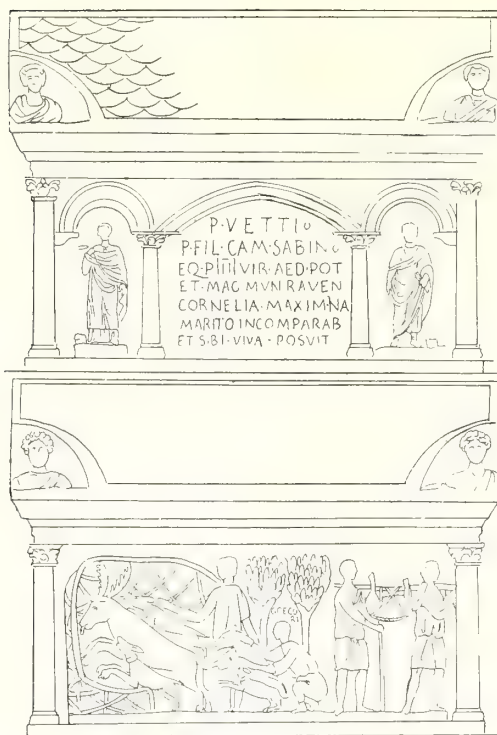 P·VETTIO
P·FIL·CAM·SABINO
EQ·P·IIIIVIR·AED·POT
ET·MAG·MVN·RAVEN
CORNELIA·MAXIMINA
MARITO INCOMPARAB
ET·SIBI·VIVA·POSVIT